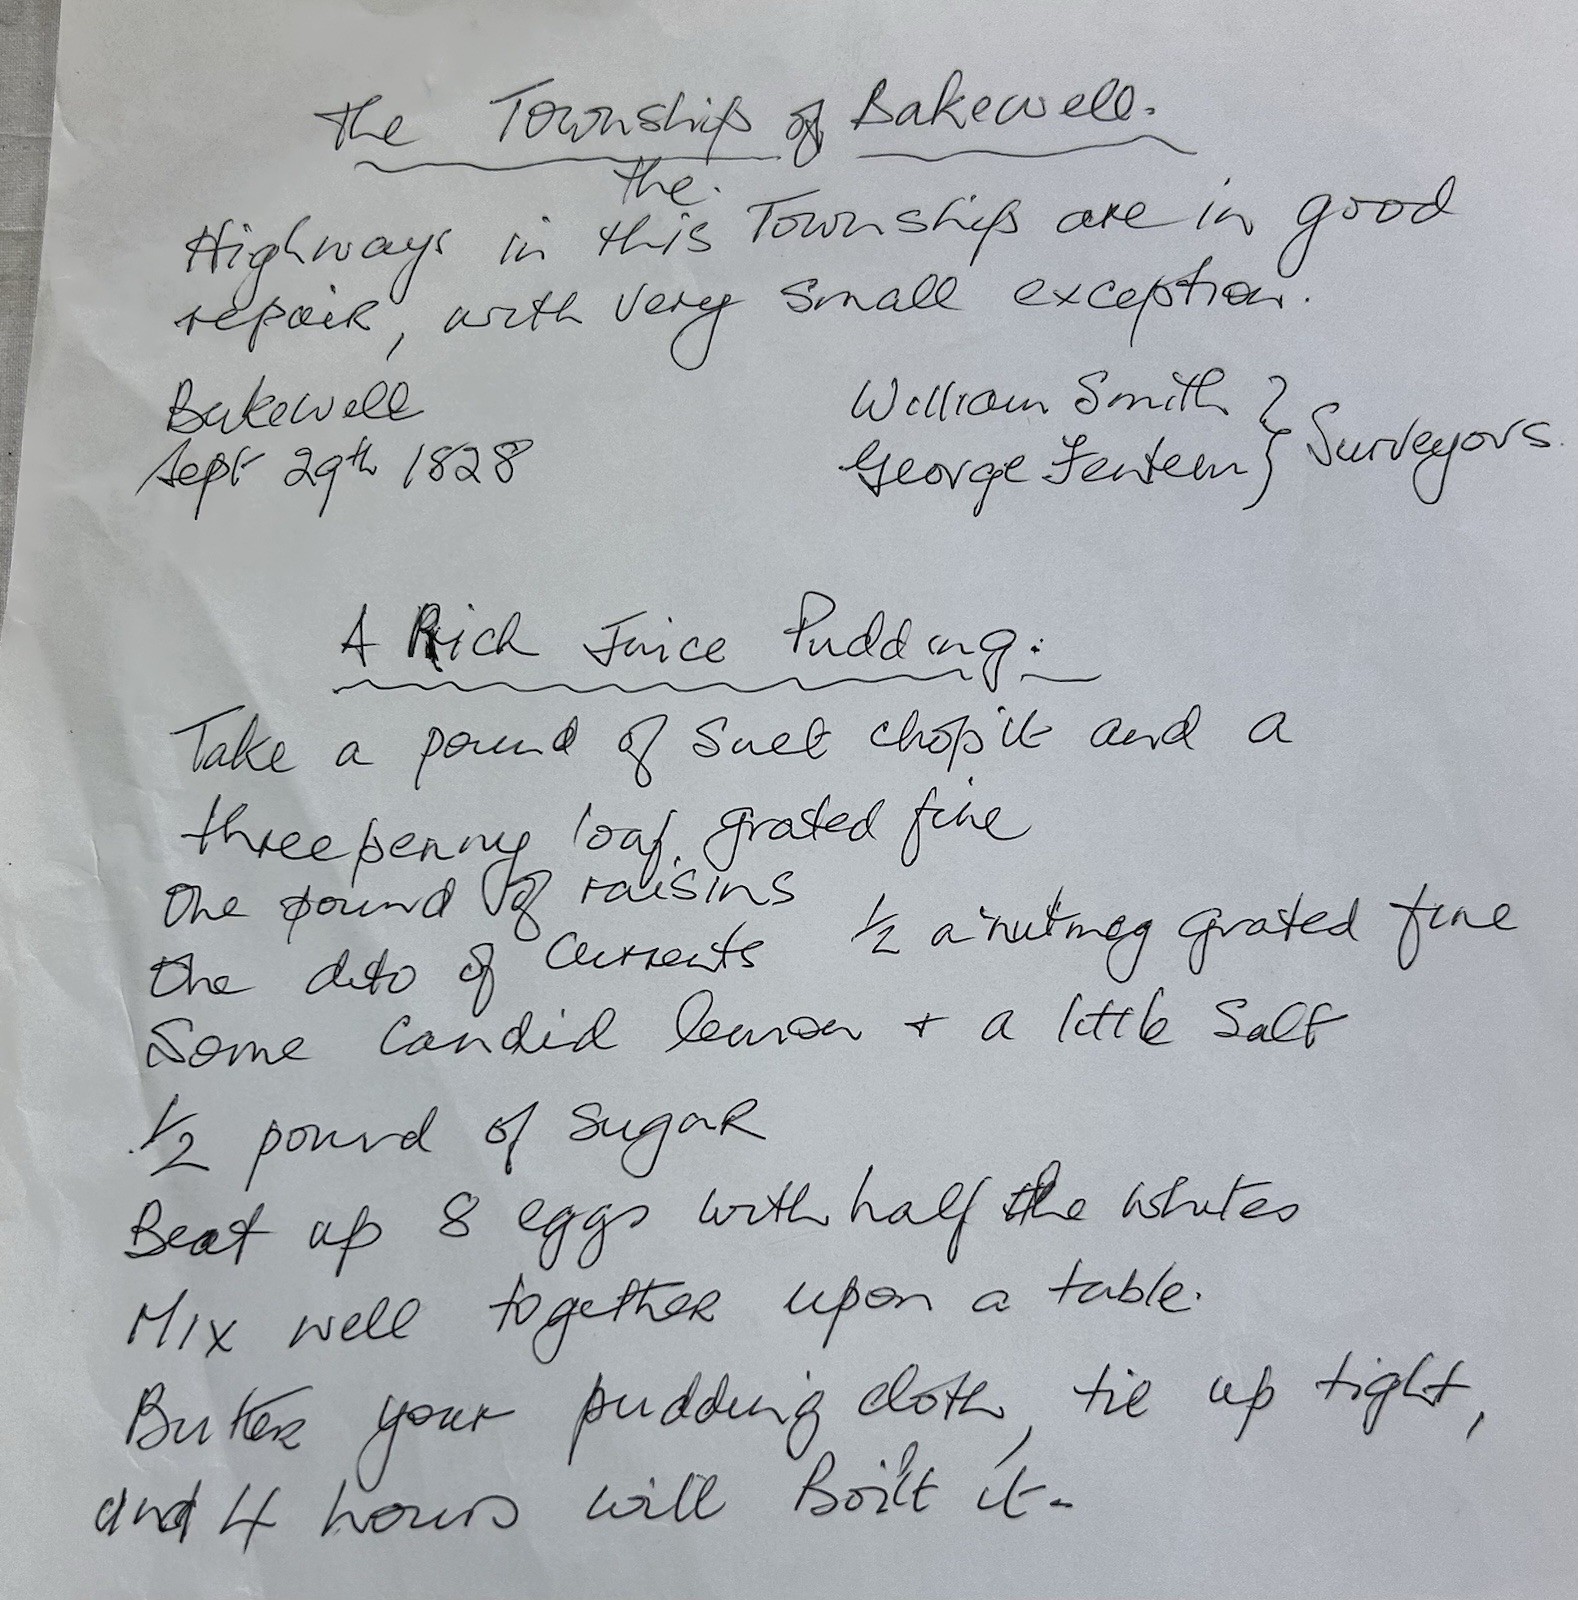 The Township of Bakewell.
the
Highways in this Township are in good
repair, with very small exception.
Bakewell
Sept 29th 1828
William Smith }
George Fentem } Surveyors.
A Rich Juice Pudding.
Take a pound of Suet chop it and a
threepenny loaf grated fine
One pound of raisins
One dito of Currents
1/2 a nutmeg grated fine
Some Candid lemon + a little Salt
1/2 pound of Sugar
Beat up 8 eggs with half the whites
Mix well together upon a table.
Butter your pudding cloth, tie up tight,
and 4 hours will Boilt it.